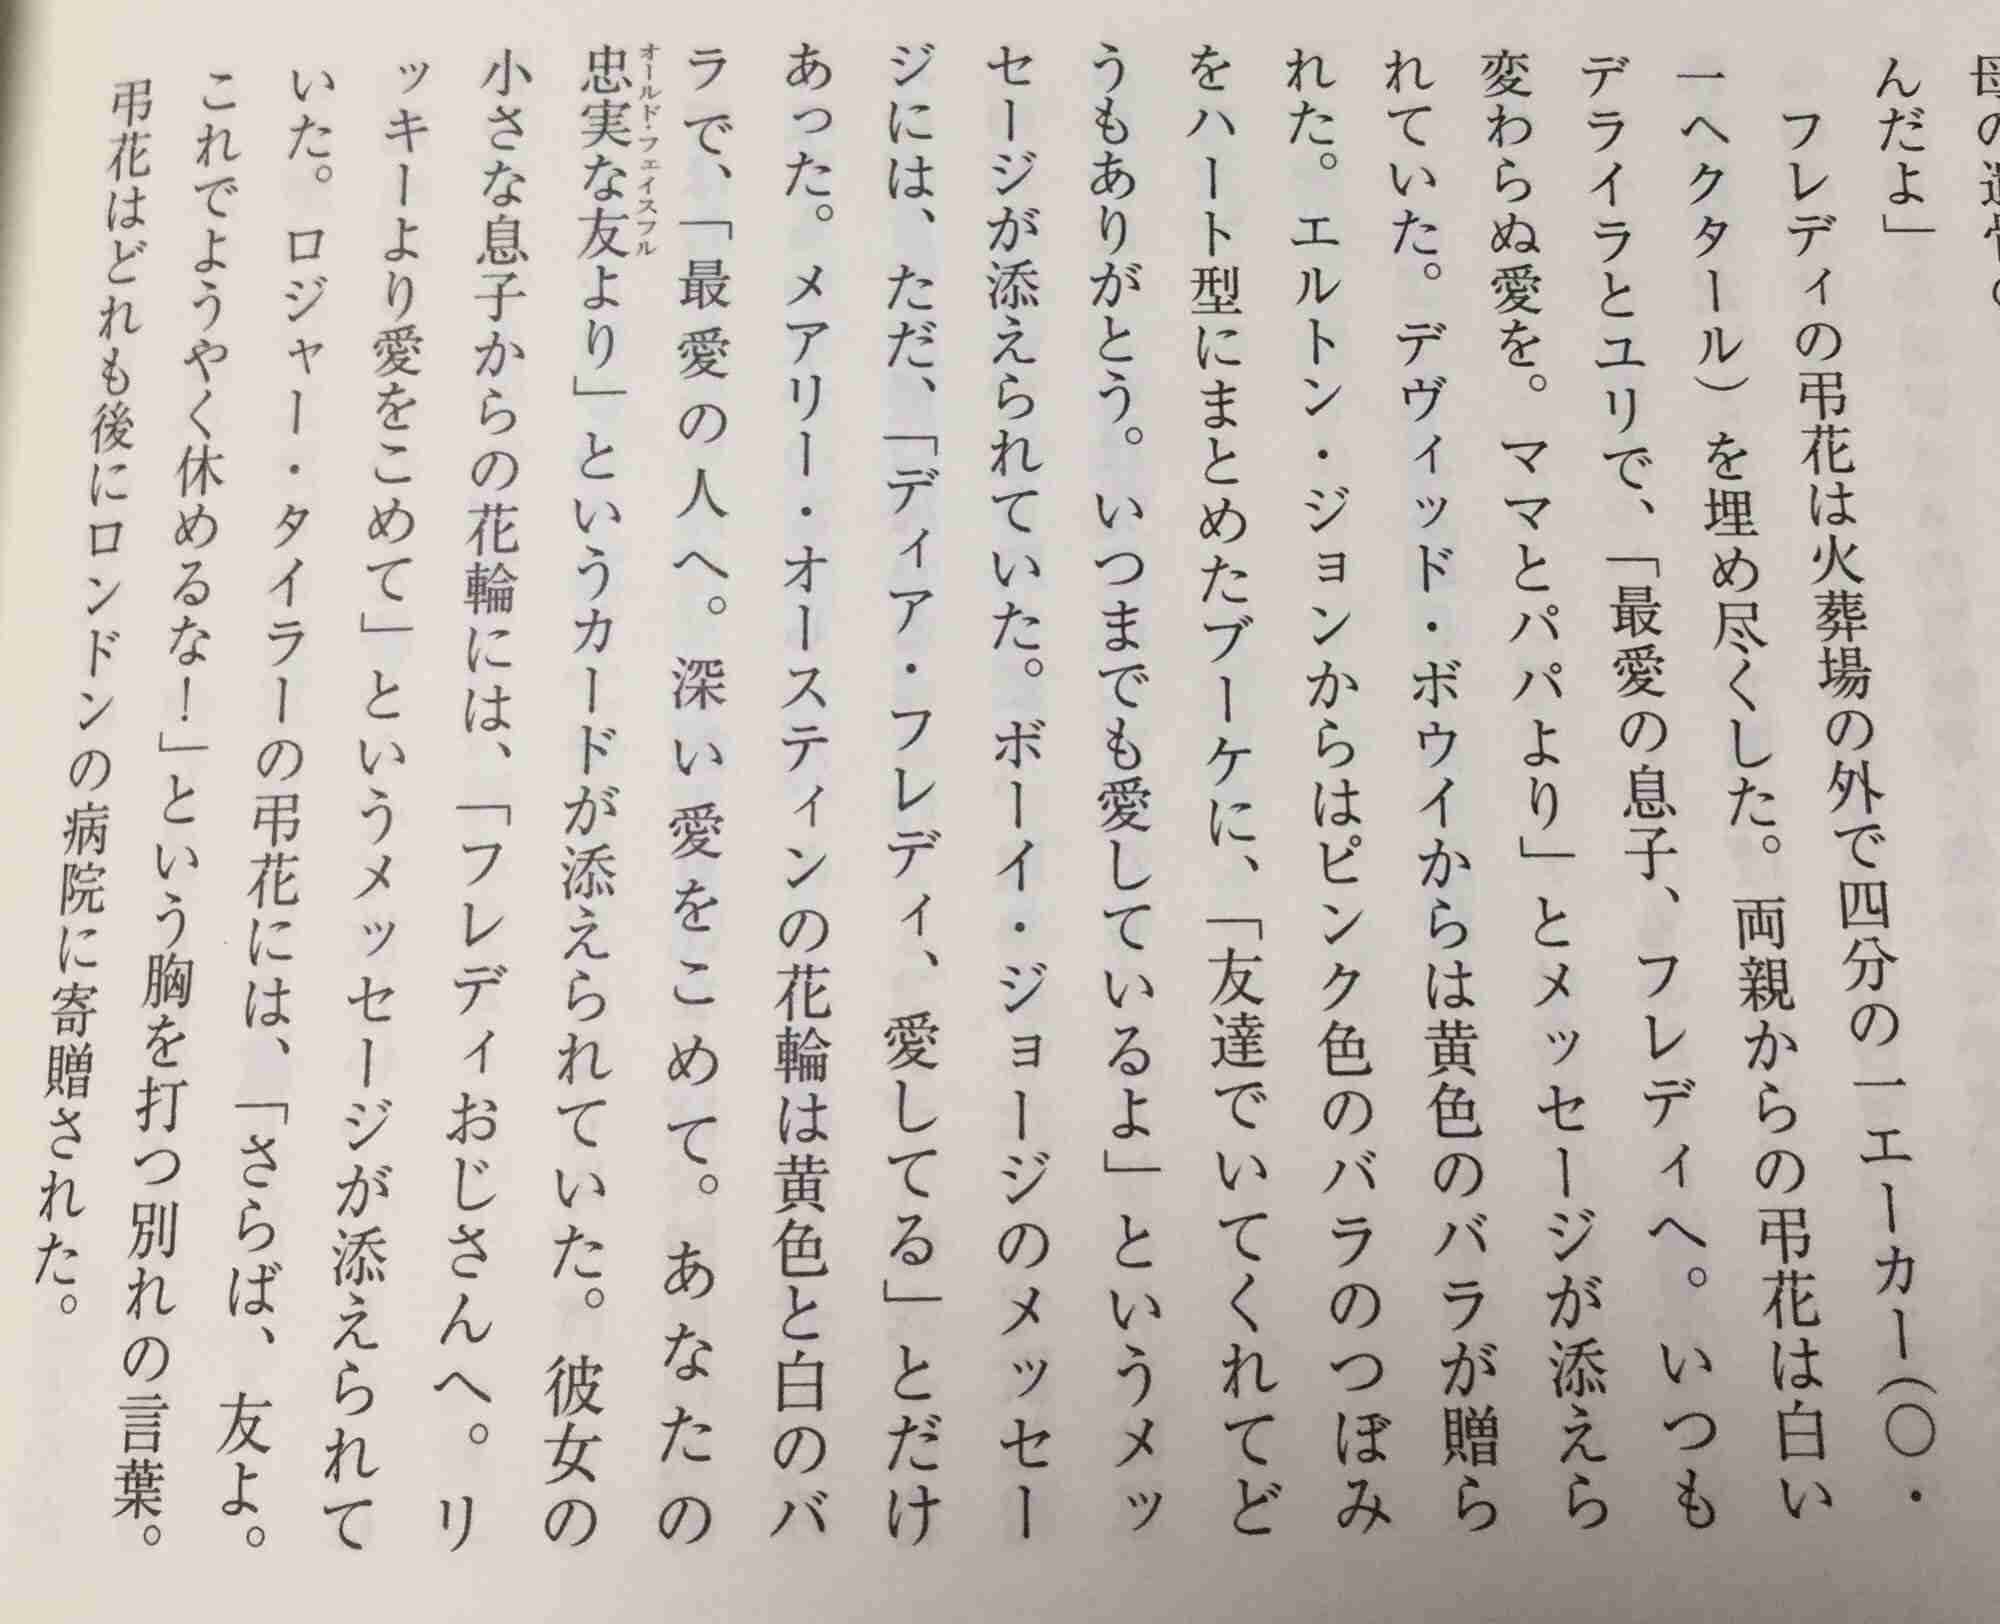 母の遺骨の
んだよ」
フレディの弔花は火葬場の外で四分の一エーカー(〇・
一ヘクタール)を埋め尽くした。両親からの弔花は白い
デライラとユリで、「最愛の息子、フレディへ。いつも
変わらぬ愛を。ママとパパより」とメッセージが添えら
れていた。デヴィッド・ボウイからは黄色のバラが贈ら
れた。エルトン・ジョンからはピンク色のバラのつぼみ
をハート型にまとめたブーケに、「友達でいてくれてど
うもありがとう。いつまでも愛しているよ」というメッ
セージが添えられていた。ボーイ・ジョージのメッセー
ジには、ただ、「ディア・フレディ、愛してる」とだけ
あった。メアリー・オースティンの花輪は黄色と白のバ
ラで、「最愛の人へ。深い愛をこめて。あなたの
オールド・フェイスフル
忠実な友より」というカードが添えられていた。彼女の
小さな息子からの花輪には、「フレディおじさんへ。リ
ッキーより愛をこめて」というメッセージが添えられて
いた。ロジャー・タイラーの弔花には、「さらば、友よ。
これでようやく休めるな!」という胸を打つ別れの言葉。
弔花はどれも後にロンドンの病院に寄贈された。